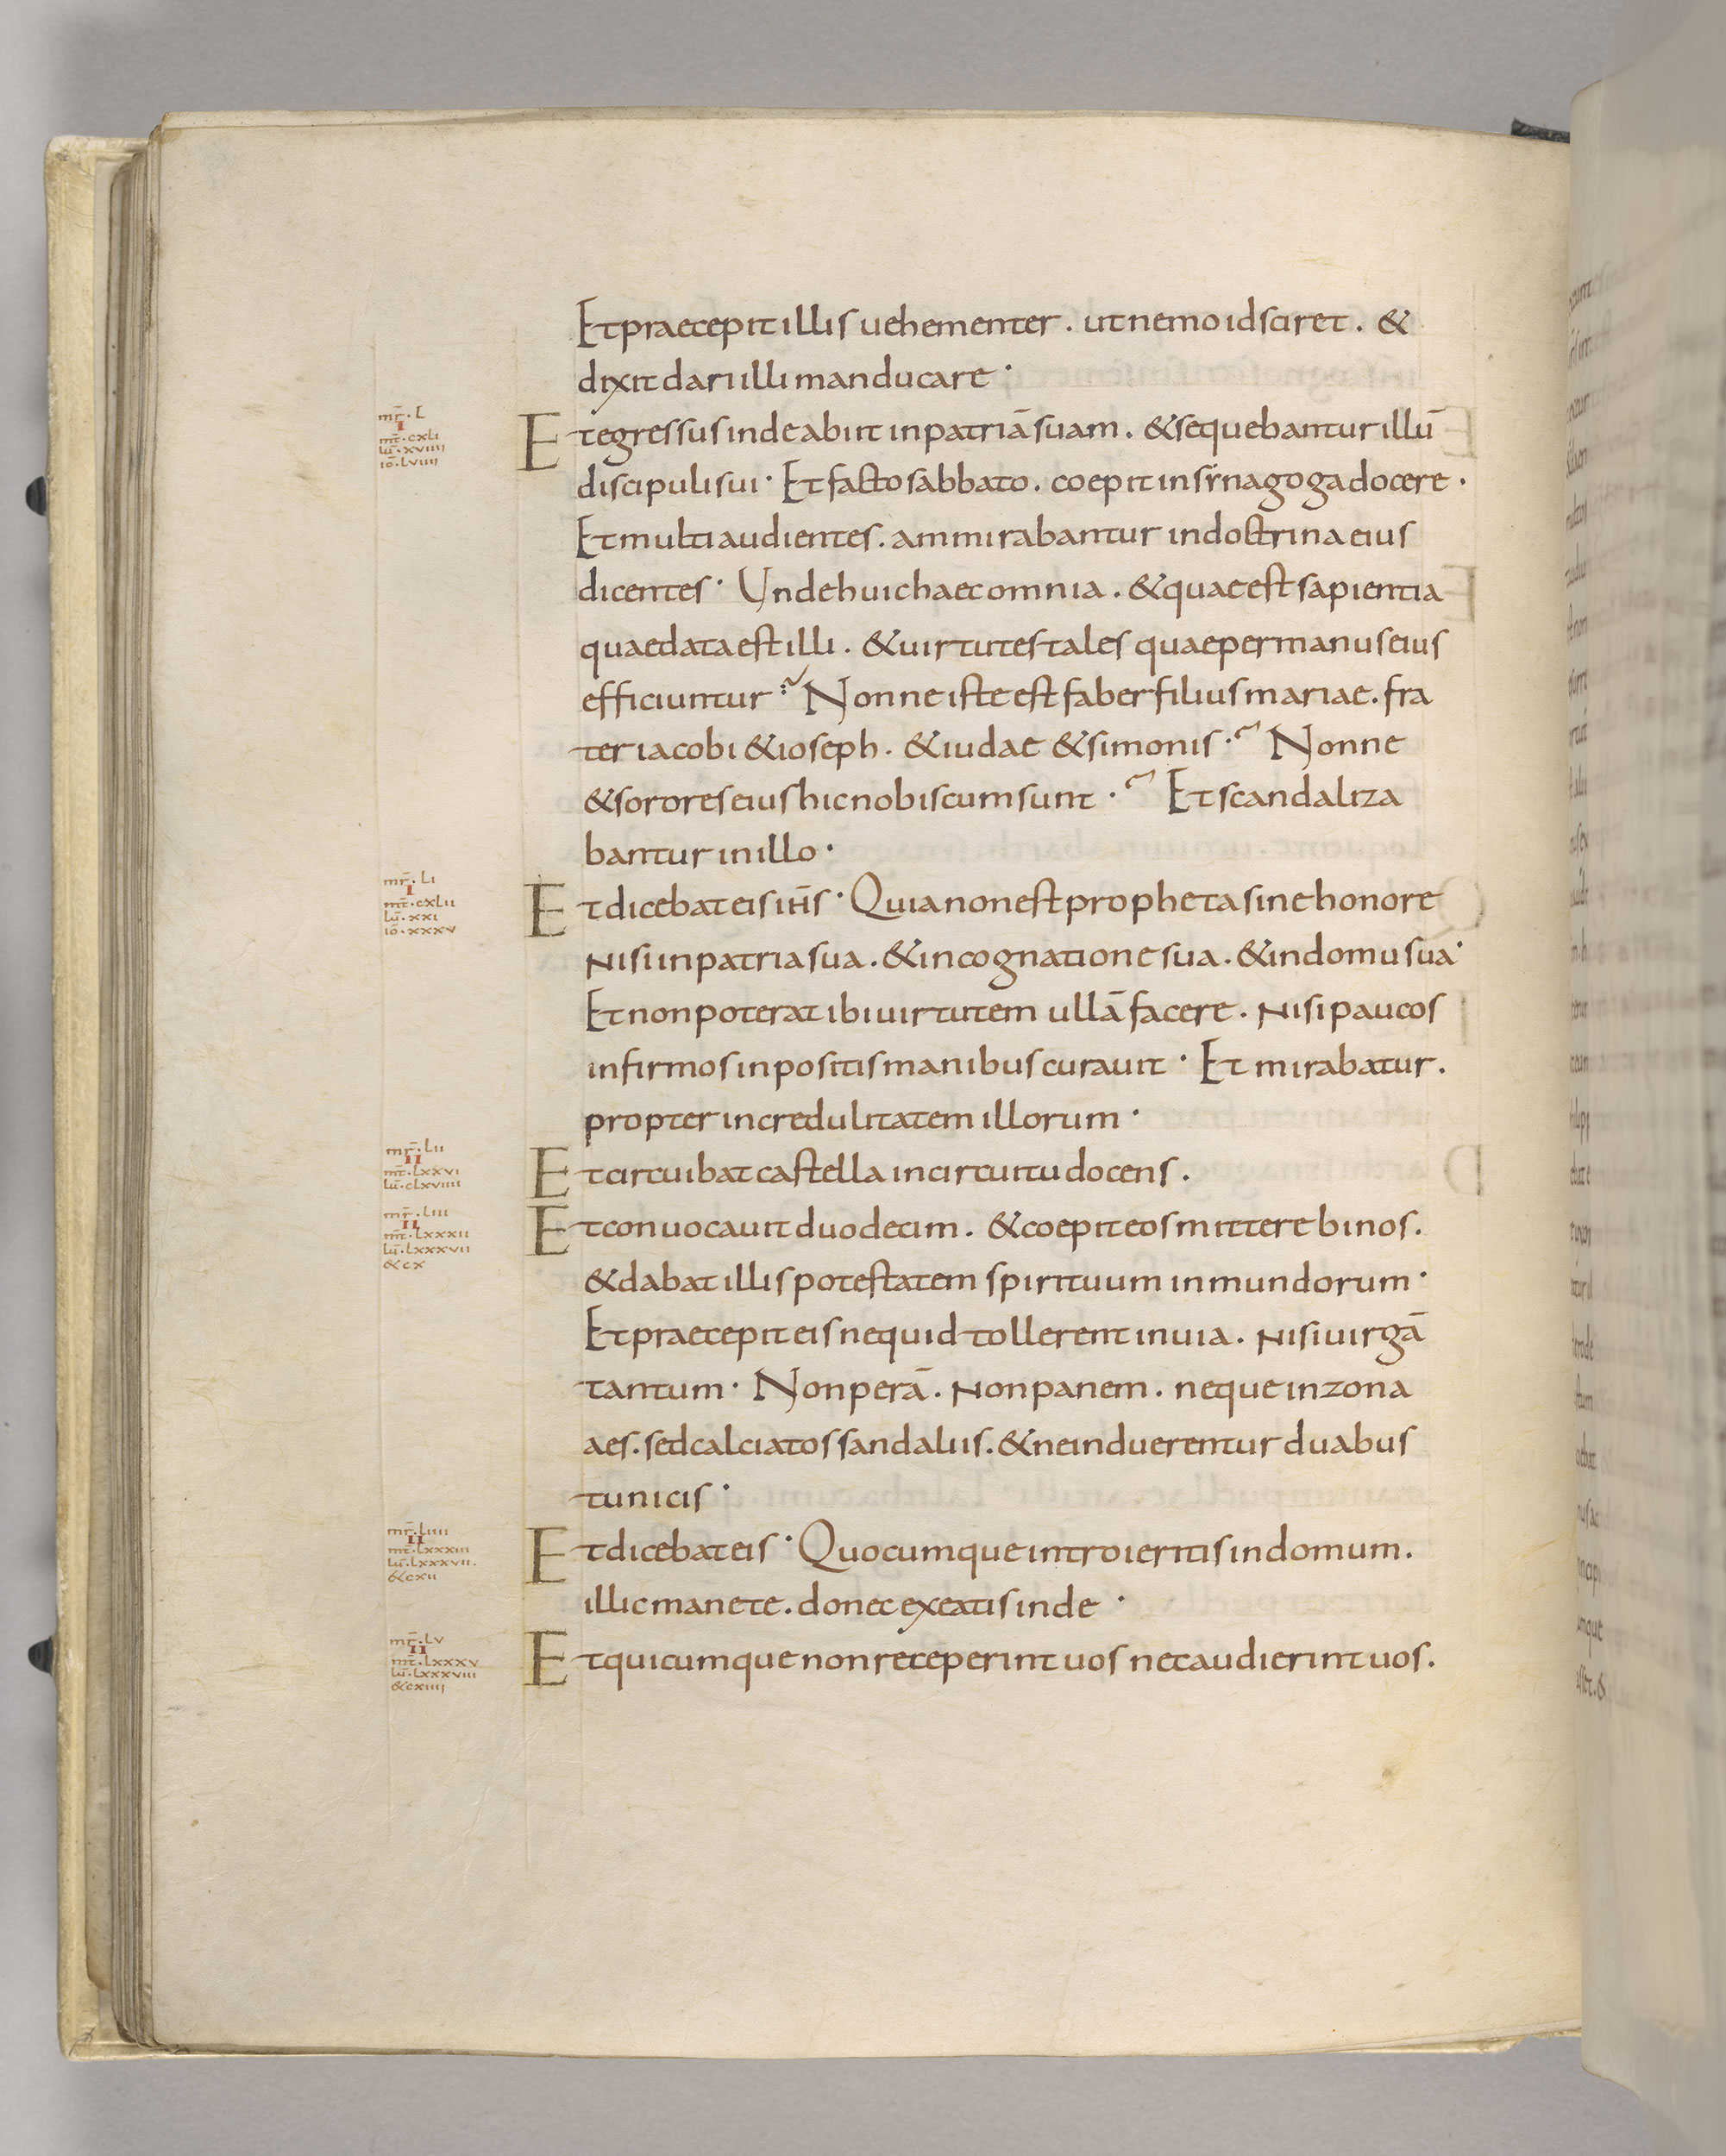 Et praecepit illis uehementer . ut nemo id sciret . &
dixit dari illi manducare ·
mr̄ · L
I
mt̄ · cxli
lū · xviiii
iō · lviiii
Et egressus inde abiit in patriā suam . & sequebantur illū
discipuli sui · Et facto sabbato . coepit in sẏnagoga docere .
Et multi audientes . ammirabantur in doctrina eius
dicentes · Unde huic haec omnia . & quae est sapientia
quae data est illi . & uirtutes tales quae per manus eius
efficiuntur ? Nonne iste est faber filius mariae . fra
ter iacobi & ioseph . & iudae & simonis ? Nonne
& sorores eius hic nobiscum sunt ? Et scandaliza
bantur in illo ·
mr̄ · Li
I
mt̄ · cxlii
lū · xxi
iō · xxxv
Et dicebat eis ih̄s · Quia non est propheta sine honore
nisi in patria sua . & in cognatione sua . & in domu sua ·
Et non poterat ibi uirtutem ullā facere . nisi paucos
infirmos inpositis manibus curauit · Et mirabatur .
propter incredulitatem illorum ·
mr̄ · Lii
II
mt̄ · Lxxvi
lū · cLxviiii
Et circuibat castella in circuitu docens .
mr̄ · Liii
II
mt̄ · Lxxxii
lū · Lxxxvii
& cx
Et conuocauit duodecim . & coepit eos mittere binos .
& dabat illis potestatem spirituum inmundorum ·
Et praecepit eis ne quid tollerent in uia . nisi uirgā
tantum · Non perā . non panem . neque in zona
aes . sed calciatos sandaliis . & ne induerentur duabus
tunicis ·
mr̄ · Liiii
II
mt̄ · Lxxxiii
lū · Lxxxvii .
& cxii
Et dicebat eis · Quocumque introieritis in domum .
illic manete . donec exeatis inde ·
mr̄ · Lv
II
mt̄ · Lxxxv
lū · Lxxxviii
& cxiiii
Et quicumque non receperint uos nec audierint uos .